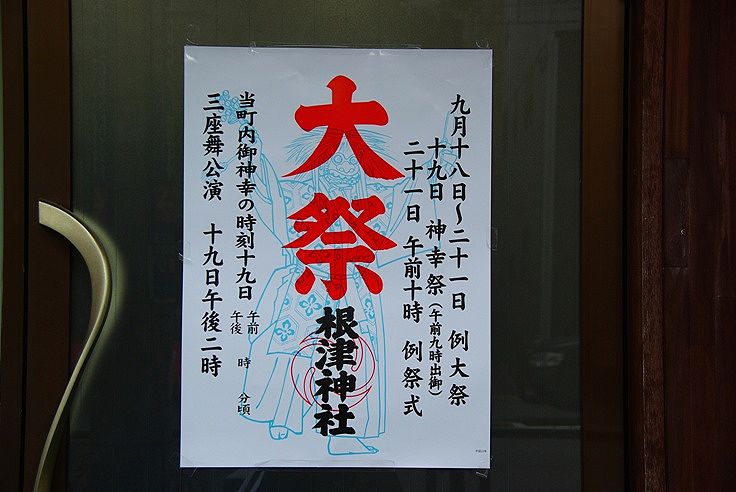 九月十八日～二十一日 例大祭
十九日 神幸祭（午前九時出御）
二十一日 午前十時 例祭式
大祭
根津神社
当町内御神幸の時刻十九日 午前 午後 時 分頃
三座舞公演 十九日午後二時